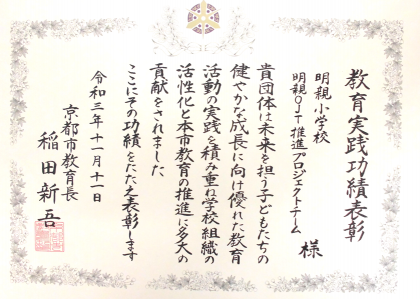 教育実践功績表彰
明親小学校
明親OJT推進プロジェクトチーム
様
貴団体は未来を担う子どもたちの
健やかな成長に向け優れた教育
活動の実践を積み重ね学校組織の
活性化と本市教育の推進に多大の
貢献をされました
ここにその功績をたたえ表彰します
令和三年十一月十一日
京都市教育長
稲田新吾